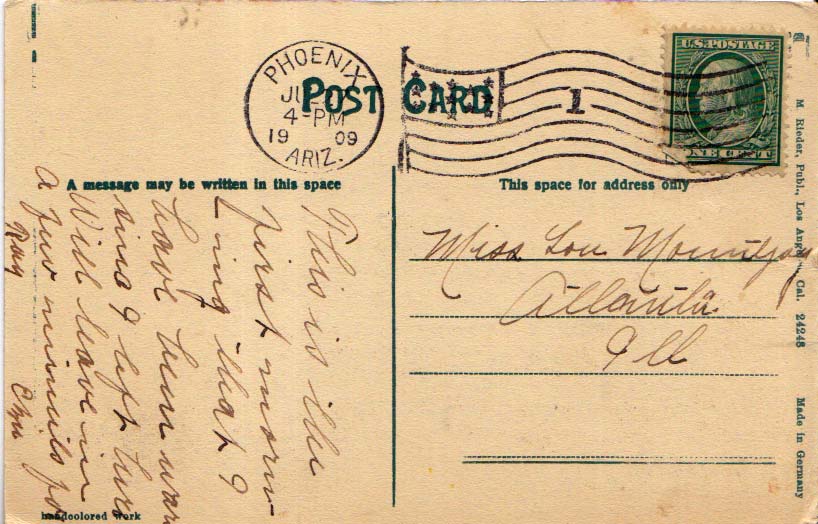 PHOENIX
4-PM
19 09
ARIZ.
POST CARD
1
U.S. POSTAGE
NE CENT
A message may be written in this space
This space for address only
This is the
first morn-
ing that I
have been
since I left
Will leave in
a few minutes
Ray
Miss Lou
Atlanta
Ill
M. Rieder, Publ., Los Cal. 24248
Made in Germany
handcolored work